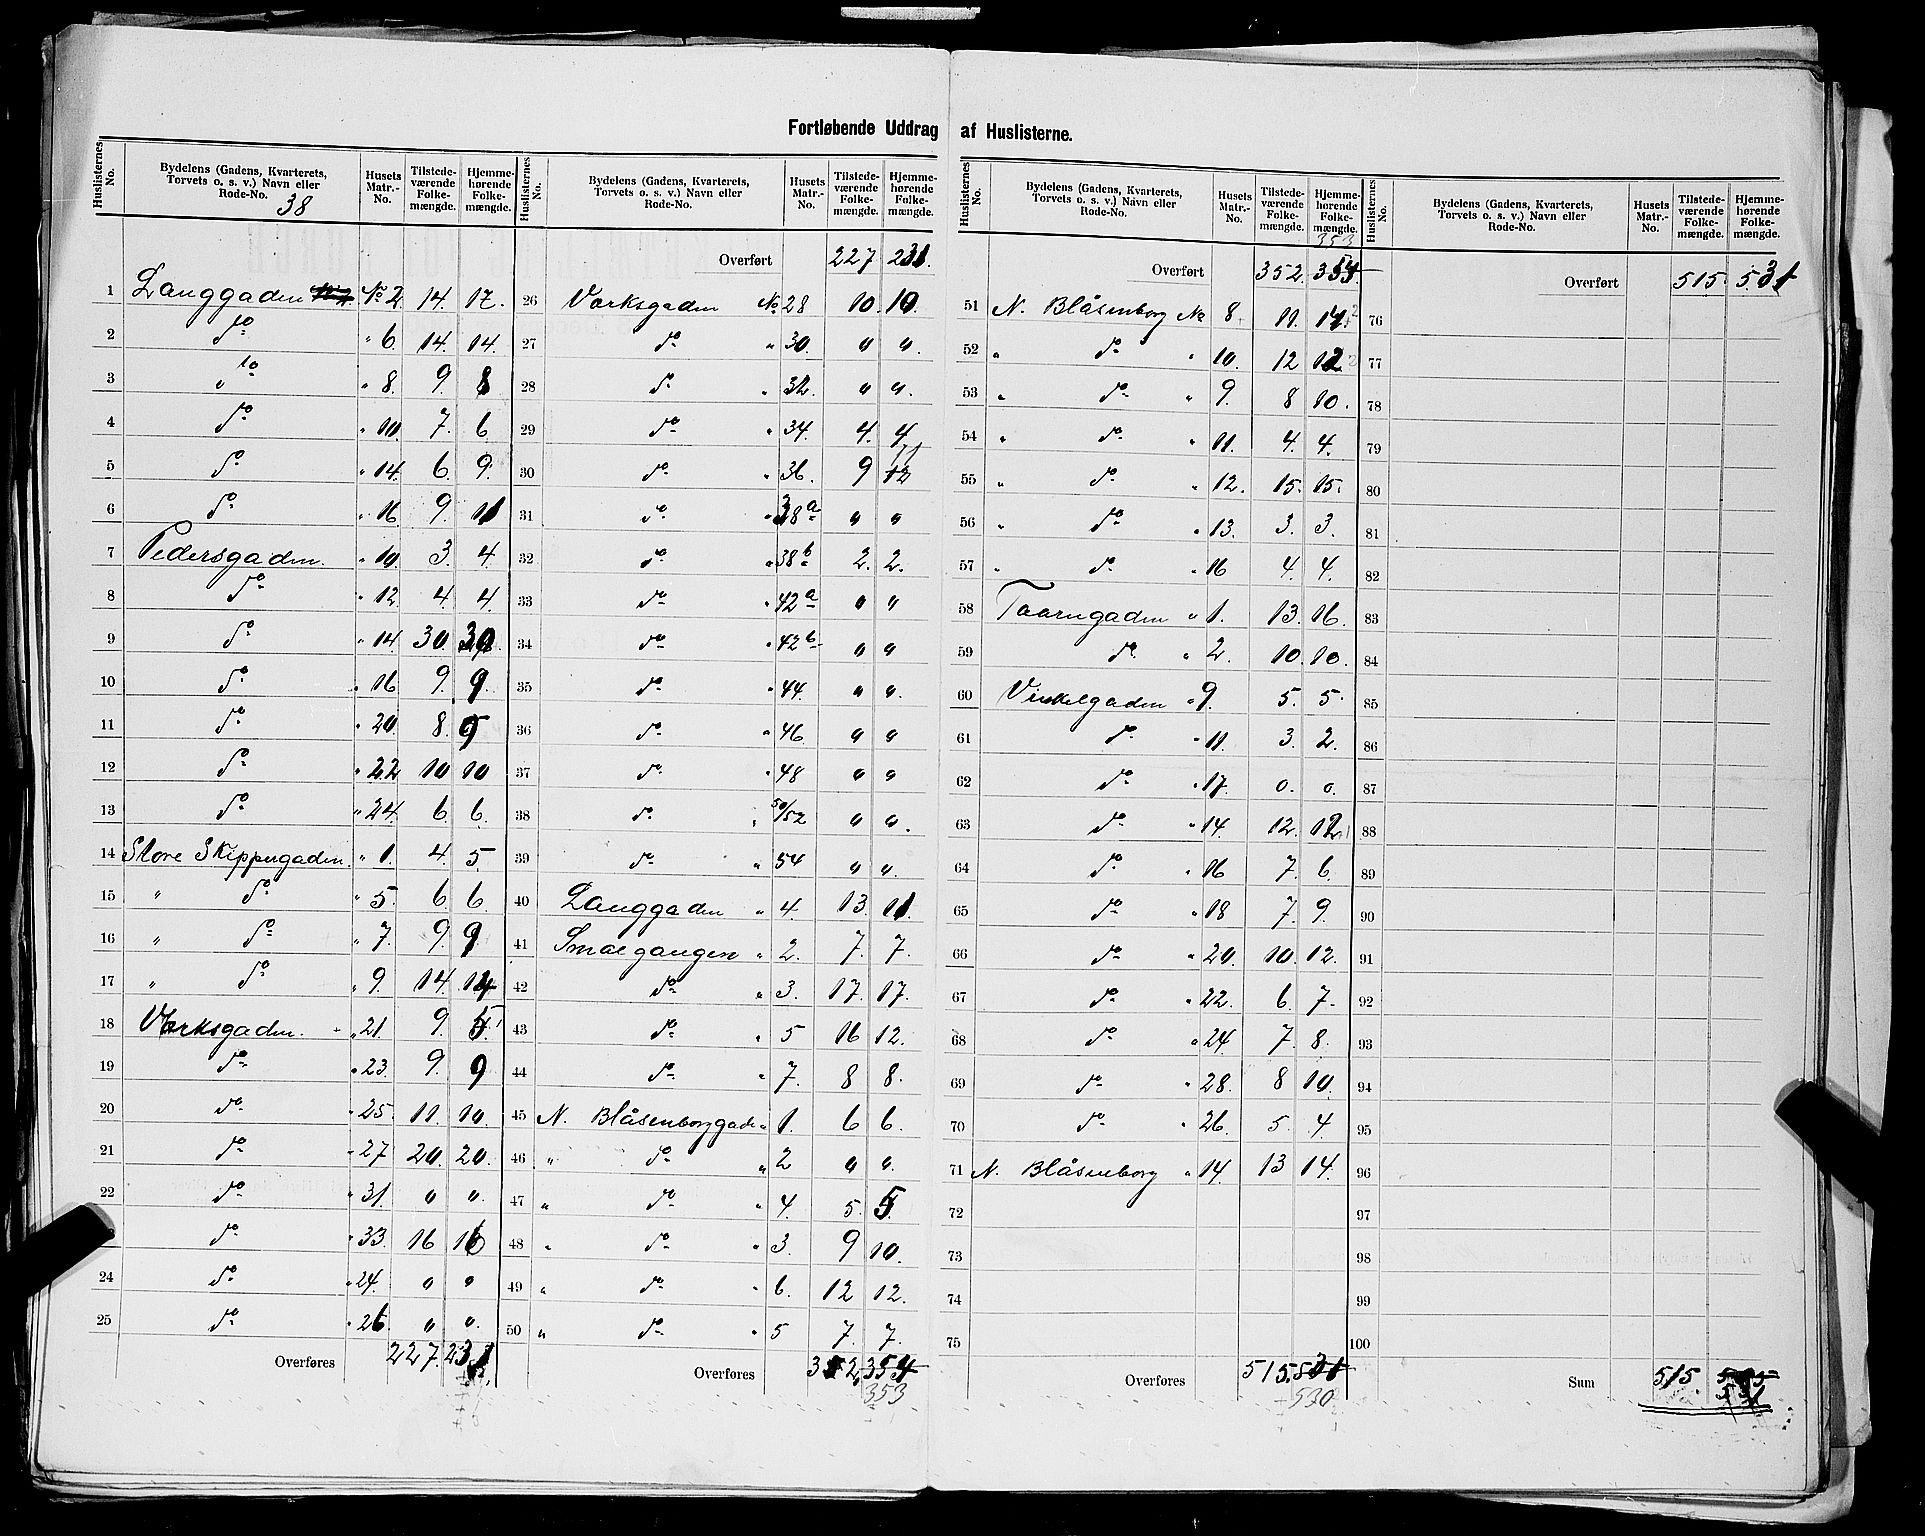 Fortløbende Uddrag af Huslisterne.
Huslisternes No. | Bydelens (Gadens, Kvarterets, Torvets o. s. v.) Navn eller Rode-No. 38 | Husets Matr.-No. | Tilstedeværende Folkemængde. | Hjemmehørende Folkemængde.
1 Langgaden No 2 14. 17.
2 do " 6 14. 14.
3 " do " 8. 9. 8
4 do " 10. 7. 6
5 do " 14. 6. 9.
6 do " 16 9. 11
7 Pedersgaden. " 10. 3. 4.
8 do " 12. 4. 4.
9 do " 14. 30. 30
10 do " 16 9. 9.
11 do " 20. 8. 9
12 do " 22 10 10
13 do " 24. 6. 6.
14 Store Skippergaden. " 1. 4. 5.
15 " do " 5. 6. 6.
16 " do " 7. 9. 9.
17 " do " 9. 14. 14
18 Værksgaden. " 21. 9. 5
19 do " 23. 9. 9
20 do " 25. 11. 10.
21 do " 27 20. 20.
22 do " 31. " "
do " 33. 16 16
24 do " 24. " "
25 do " 26 " "
Overføres 227. 231
Huslisternes No. | Bydelens (Gadens, Kvarterets, Torvets o. s. v.) Navn eller Rode-No. | Husets Matr.-No. | Tilstedeværende Folkemængde. | Hjemmehørende Folkemængde.
Overført 227 231.
26 Værksgaden No 28 10. 10.
27 do " 30. " "
28 do " 32. " "
29 do " 34. 4. 4
30 do " 36. 9 12 11
31 do " 38a " "
32 do " 38b 2. 2.
33 do " 42a " "
34 do " 42b " "
35 do " 44. " "
36 do " 46. " "
37 do " 48 " "
38 do " 50/52 " "
39 do " 54 " "
40 Langgaden " 4. 13. 11.
41 Smalgangen " 2. 7. 7.
42 do " 3. 17. 17.
43 do " 5 16 12.
44 do " 7. 8 8.
45 N. Blåsenborggade " 1. 6 6.
46 " do " 2 " "
47 " do " 4. 5 5
48 " do " 3. 9 10.
49 " do " 6. 12 12.
50 " do " 5 7. 7.
Overføres 352. 354
353
Huslisternes No. | Bydelens (Gadens, Kvarterets, Torvets o. s. v.) Navn eller Rode-No. | Husets Matr.-No. | Tilstedeværende Folkemængde. | Hjemmehørende Folkemængde.
353
Overført 352. 354
51 N. Blåsenborg No 8. 11.
52 " do " 10. 12 12
53 " do " 9. 8 10.
54 " do " 11. 4. 4.
55 " do " 12. 15. 15.
56 " do " 13. 3. 3.
57 " do " 16 4. 4.
58 Taarngaden " 1. 13. 16.
59 do " 2. 10. 10.
60 Vinkelgaden " 9. 5. 5.
61 do " 11. 3. 2.
62 do " 17. 0. 0.
63 do " 14. 12. 12
64 do " 16 7. 6.
65 do " 18 7. 9.
66 do " 20. 10. 12.
67 do " 22. 6. 7.
68 do " 24. 7. 8.
69 do " 28. 8 10.
70 do " 26. 5. 4.
71 N. Blåsenborg " 14. 13 14.
72
73
74
75
Overføres 515. 531
530
Huslisternes No. | Bydelens (Gadens, Kvarterets, Torvets o. s. v.) Navn eller Rode-No. | Husets Matr.-No. | Tilstedeværende Folkemængde. | Hjemmehørende Folkemængde.
Overført 515. 531
76
77
78
79
80
81
82
83
84
85
86
87
88
89
90
91
92
93
94
95
96
97
98
99
100
Sum 515
531